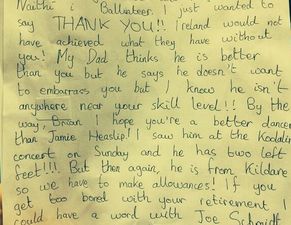 Naithí i Ballinteer. I just wanted to
say THANK YOU!! Ireland would not
have achieved what they have without
you! My Dad thinks he is better
than you but he says he doesn't want
to embarrass you but I know he isn't
anywhere near your skill level!! By the
way, Brian I hope you're a better dancer
than Jamie Heaslip! I saw him at the Kodaline
concert on Sunday and he has two left
feet!!! But then again, he is from Kildare
so we have to make allowances! If you
get too bored with your retirement I
could have a word with Joe Schmidt